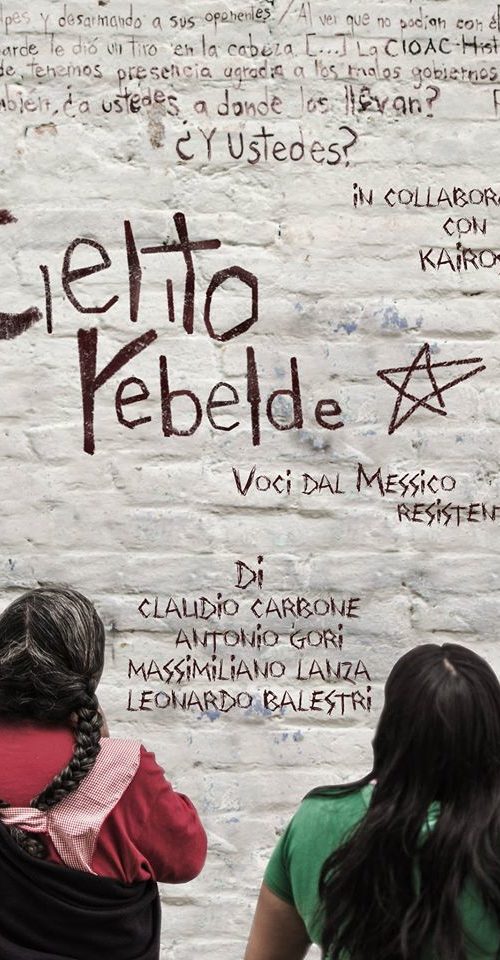 lpes y desarmando a sus oponentes / Al ver que no podían con él
arde le dió un tiro en la cabeza [...] La CIOAC-Hist
de, tenemos presencia ugradia a los malos gobiernos
mbien, ¿a ustedes a donde los llevan? [
¿Y Ustedes?
IN COLLABORA
CON
KAIRO
Cielito
rebelde
VOCI DAL MESSICO
RESISTEN
DI
CLAUDIO CARBONE
ANTONIO GORI
MASSIMILIANO LANZA
LEONARDO BALESTRI